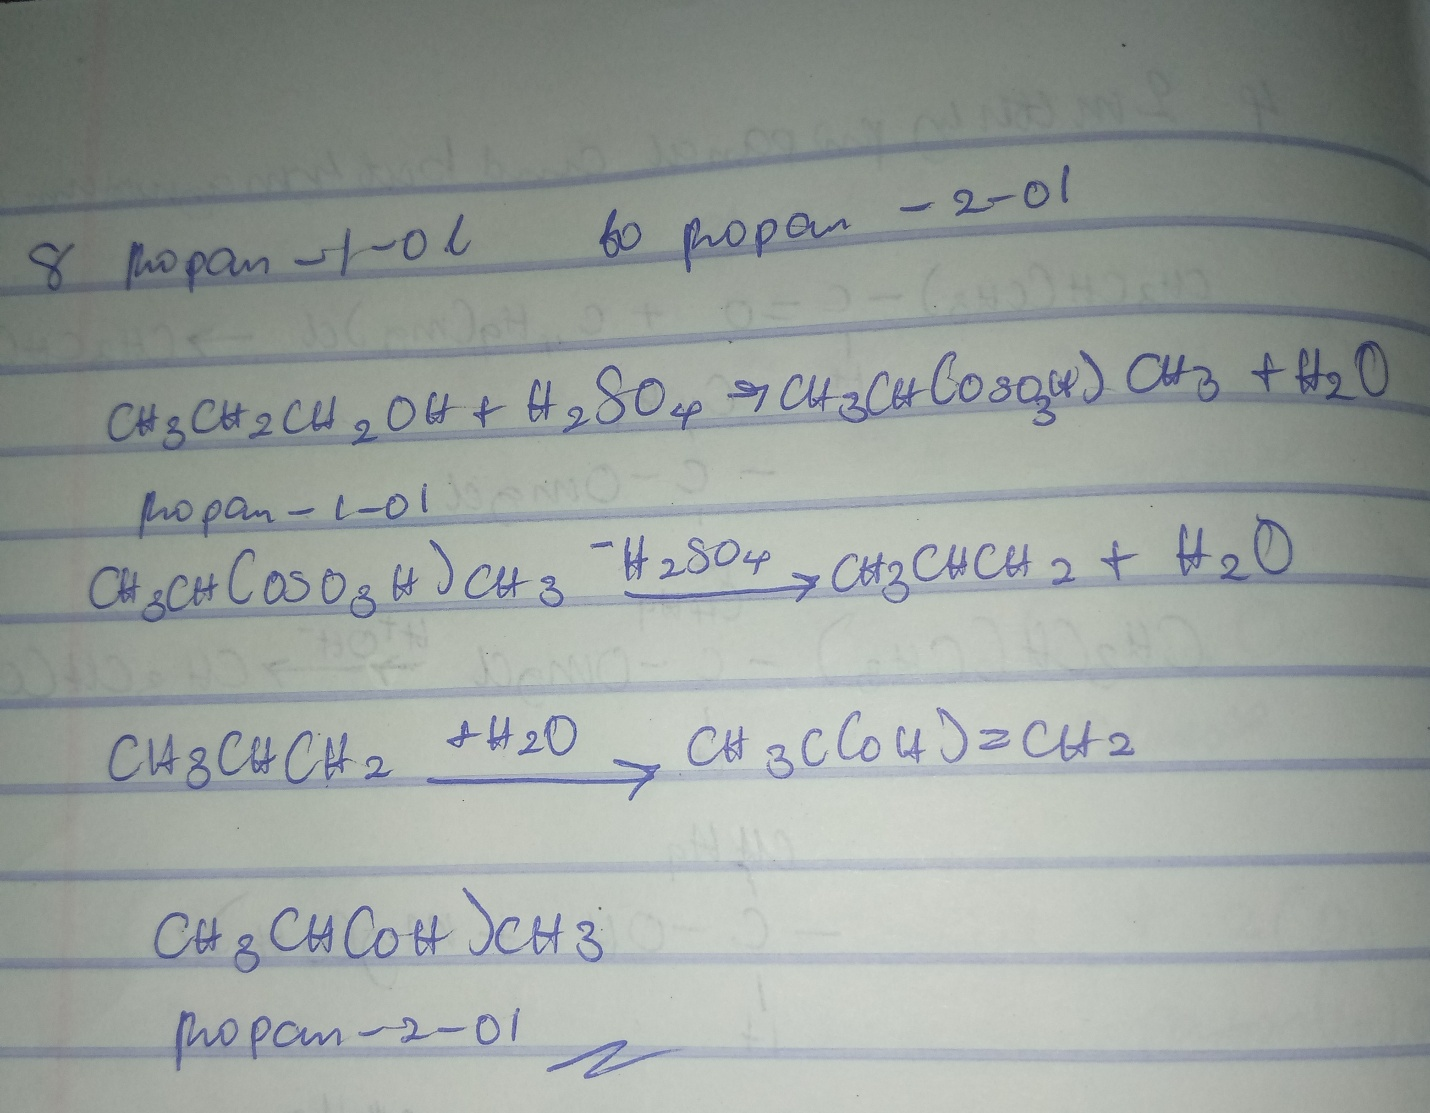 8 propan-1-ol to propan-2-ol
CH3CH2CH2OH + H2SO4 → CH3CH(OSO3H)CH3 + H2O
propan-1-ol
CH3CH(OSO3H)CH3 -H2SO4→ CH3CHCH2 + H2O
CH3CHCH2 +H2O→ CH3C(OH)=CH2
CH3CH(OH)CH3
propan-2-ol